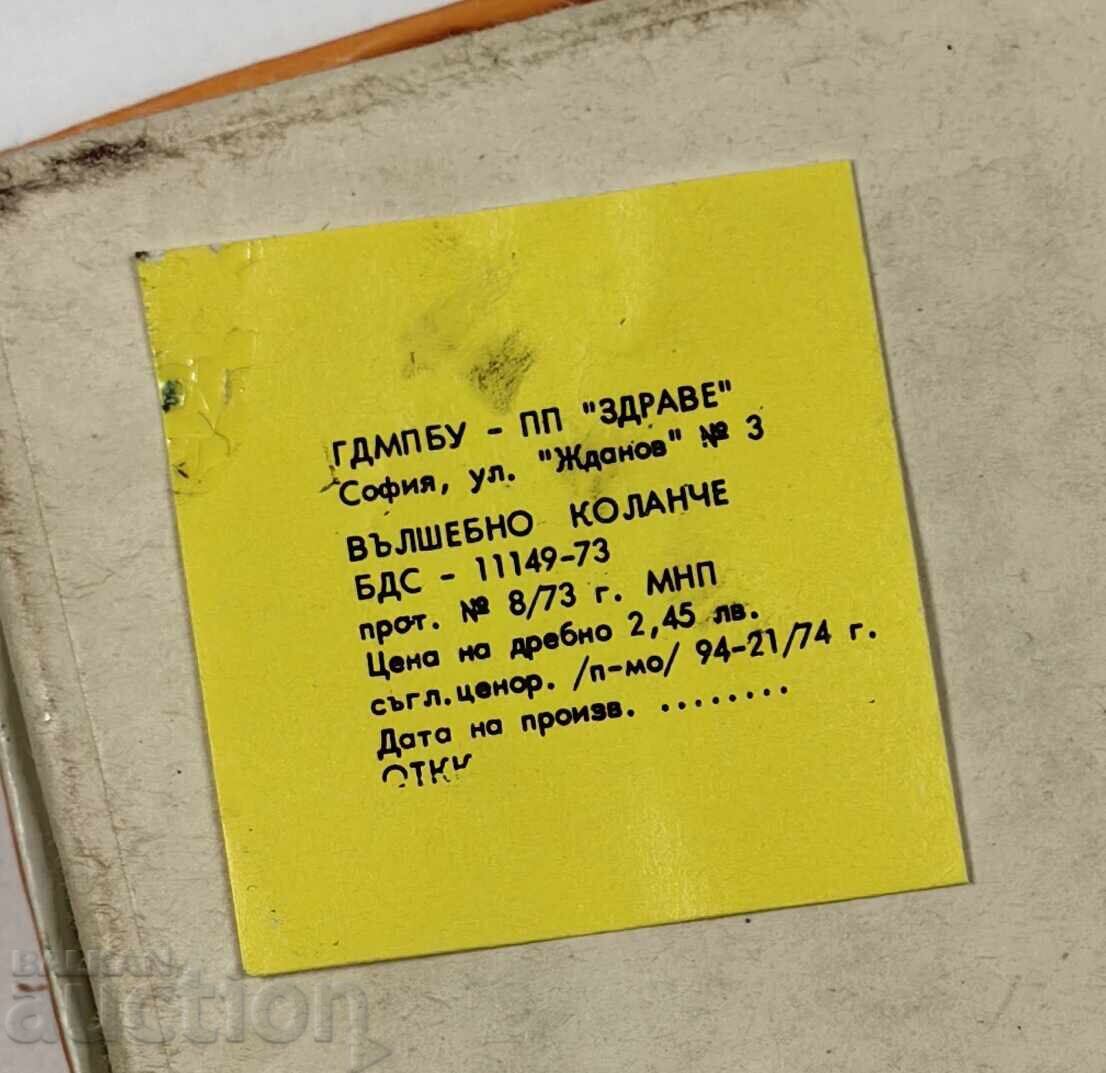 ГДМПБУ - ПП "ЗДРАВЕ"
София, ул. "Жданов" № 3
ВЪЛШЕБНО КОЛАНЧЕ
БДС - 11149-73
прот. № 8/73 г. МНП
Цена на дребно 2,45 лв.
съгл.ценор. /п-мо/ 94-21/74 г.
Дата на произв. ........
ОТКК
BALKAN
auction